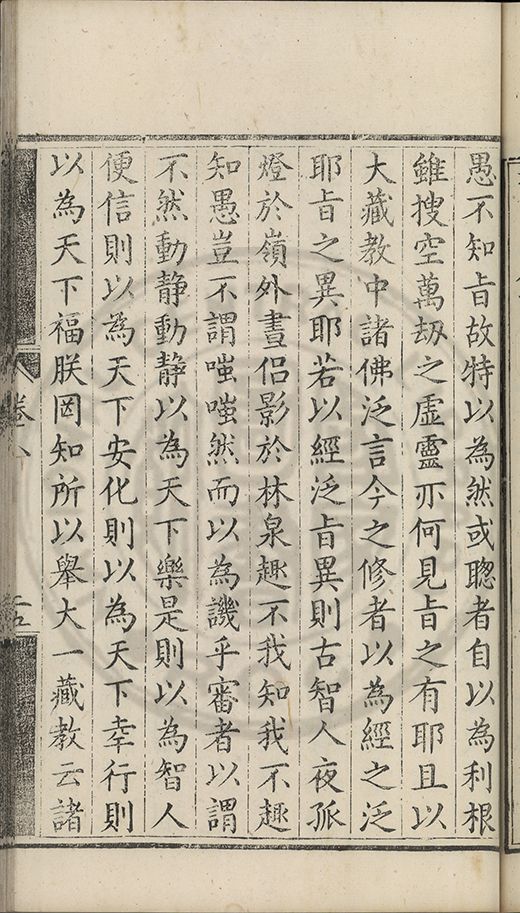 愚不知旨故特以為然或聰者自以為利根
雖搜空萬劫之虛靈亦何見旨之有耶且以
大藏教中諸佛泛言今之修者以為經之泛
耶旨之異耶若以經泛旨異則古智人夜孤
燈於嶺外晝侶影於林泉趣不我知我不趣
知愚豈不謂嗤嗤然而以為譏乎審者以謂
不然動靜動靜以為天下樂是則以為智人
便信則以為天下安化則以為天下幸行則
以為天下福朕罔知所以舉大一藏教云諸
卷八